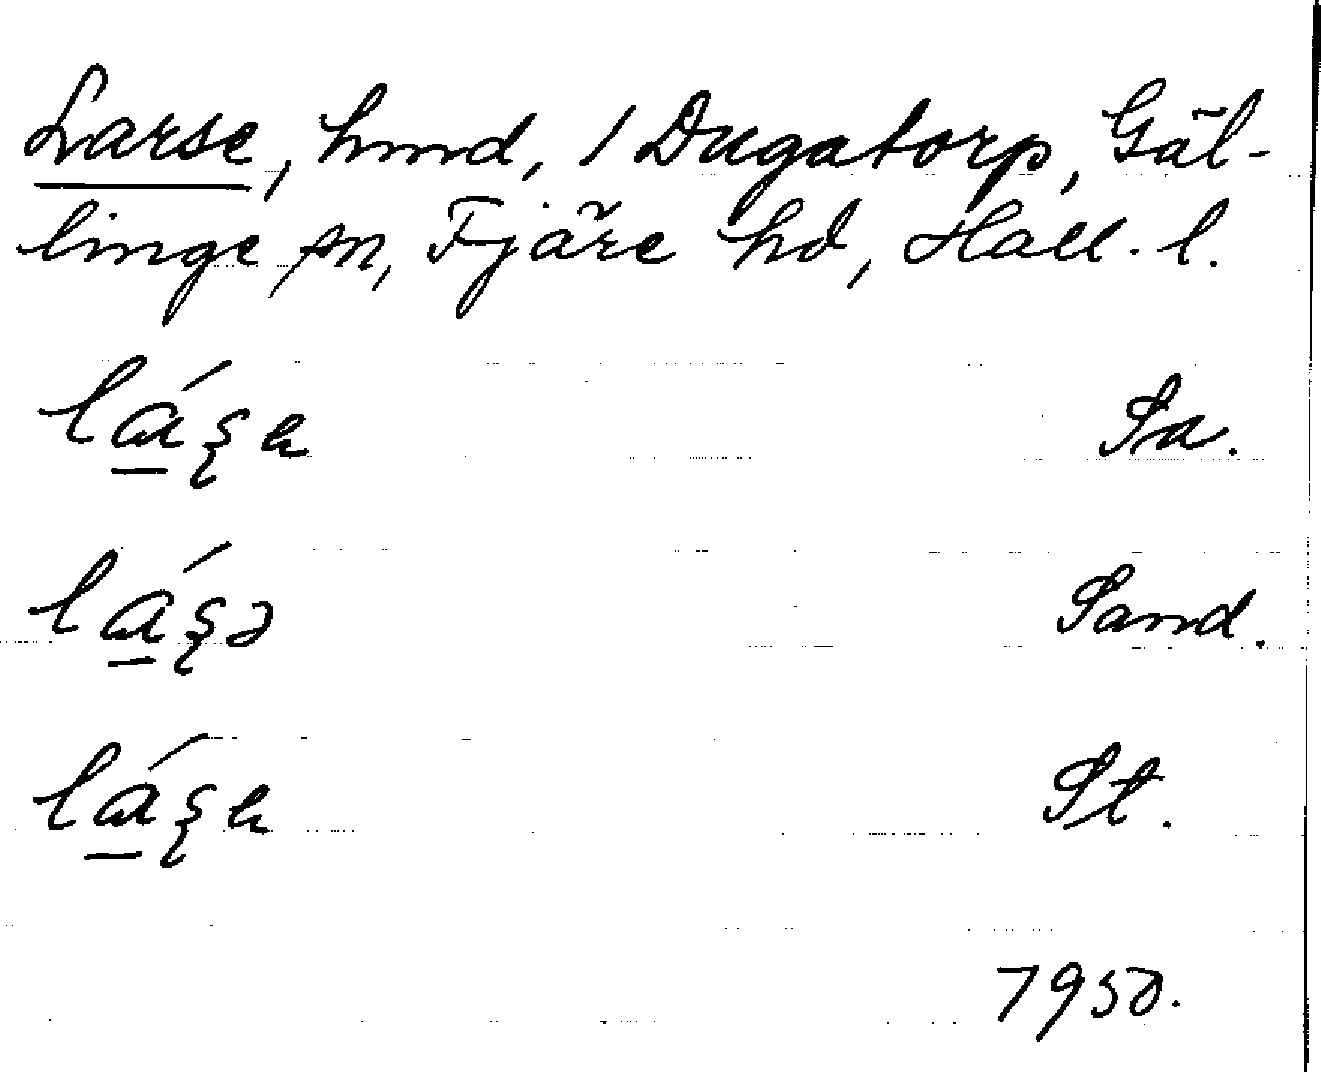 Larse, hmd, 1 Dugatorp, Gäl-
linge sn, Fjäre hd, Hall. l.
lá̱ʂɐ Sa.
lá̱ʂə Sand.
lá̱ʂɐ St.
1950.